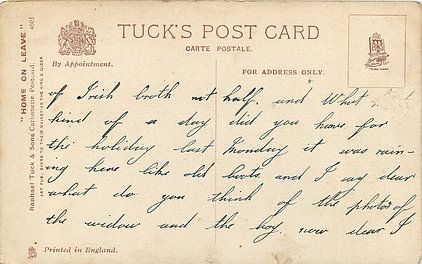 TUCK'S POST CARD
CARTE POSTALE.
By Appointment.
FOR ADDRESS ONLY.
"HOME ON LEAVE" 4603
Raphael Tuck & Sons Carbonette Postcard.
TRADE MARK
of Irish broth not half. and What
kind of a day did you have for
the holiday last Monday it was rain-
ing here like old boots and I say dear
what do you think of the photo of
the widow and the boy. now dear I
Printed in England.